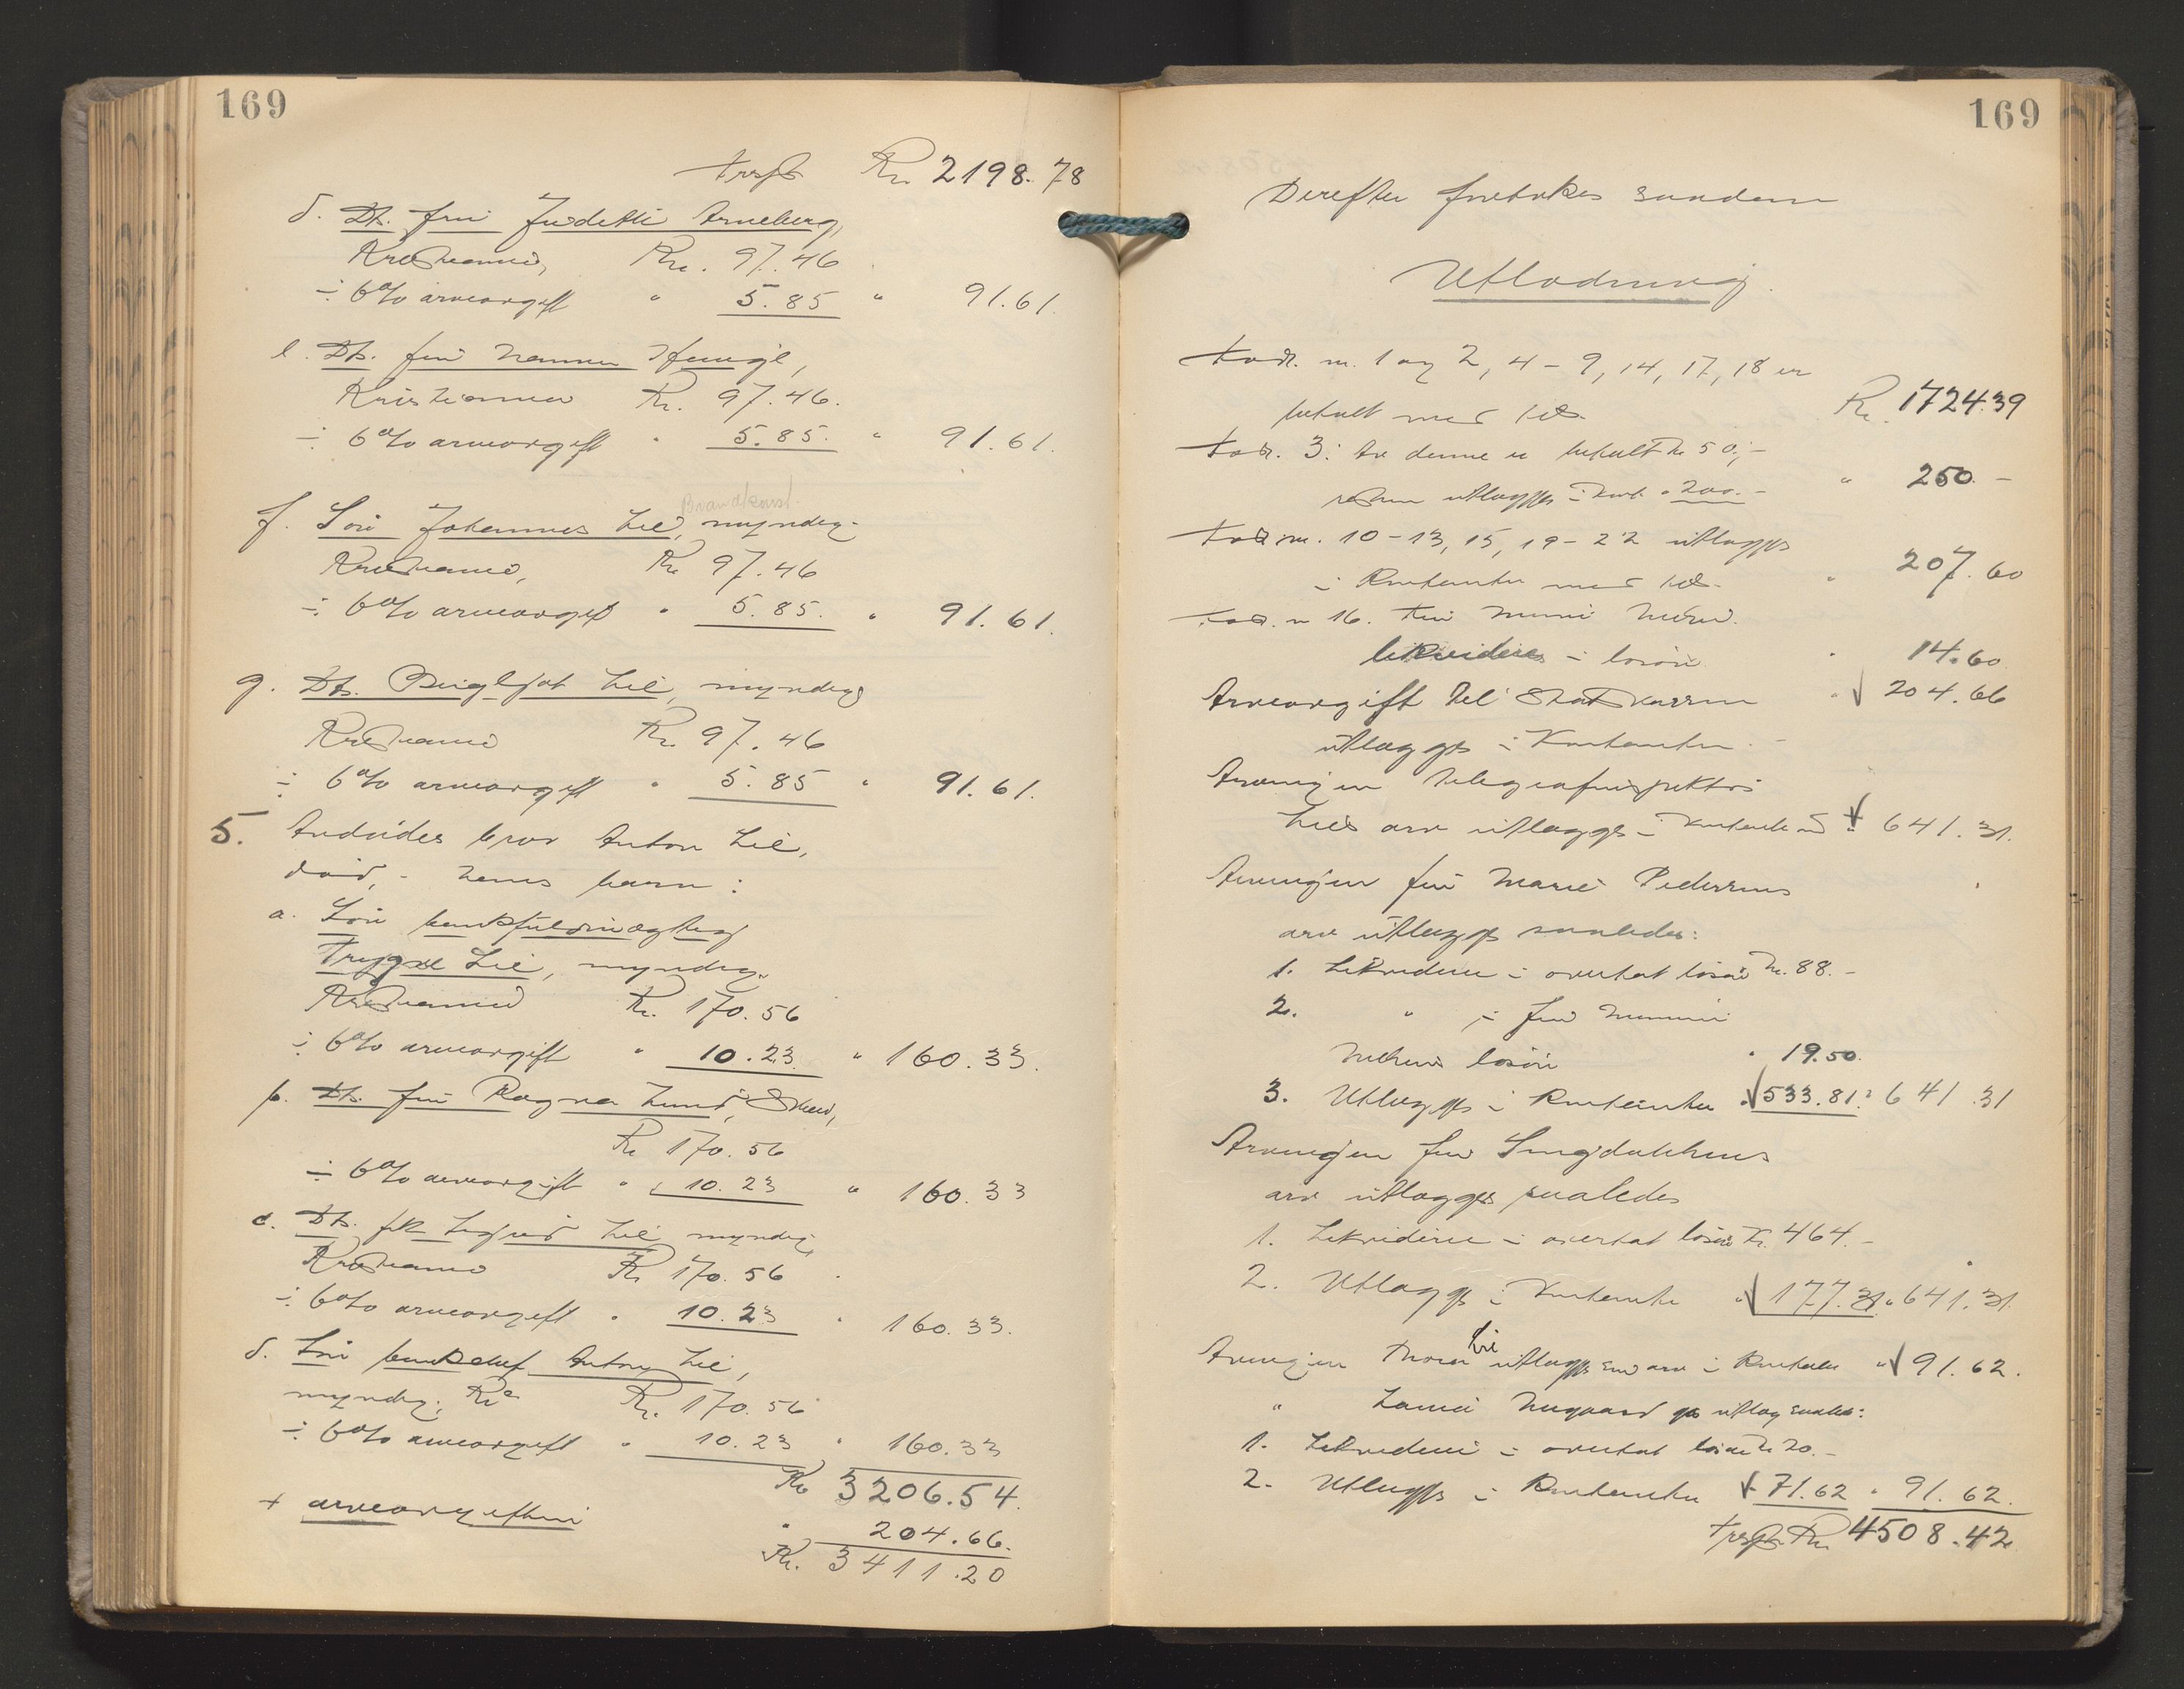 169
Trspt Kr. 2198.78
d. Dt. fru Arneberg,
Kristiania, Kr. 97.46
÷ 6% arveavgift " 5.85 " 91.61.
e. Dt. fru Hanna
Kristiania Kr. 97.46.
÷ 6% arveavgift " 5.85. " 91.61.
Brandkonst.
f. Søn Johannes Lie, myndig.
Kristiania, Kr. 97.46
÷ 6% arveavgift " 5.85. " 91.61.
g. Dt. Bergljot Lie, myndig
Kristiania Kr. 97.46
÷ 6% arveavgift " 5.85 " 91.61.
5. Avdødes bror Anton Lie,
død, - hans barn:
a. Søn bankfuldmægtig
Trygve Lie, myndig.
Kristiania Kr. 170.56
÷ 6% arveavgift " 10.23 " 160.33.
b. Dt. fru Ragna Lund, Skien,
Kr. 170.56
÷ 6% arveavgift " 10.23 " 160.33
c. Dt. frk. Lie, myndig,
Kristiania Kr. 170.56
÷ 6% arveavgift " 10.23 " 160.33.
d. Søn bankchef Anton Lie,
myndig, Kra Kr. 170.56
÷ 6% arveavgift " 10.23 " 160.33
Kr. 3206.54.
+ arveavgiften " 204.66.
Kr. 3411.20
169
Derefter foretokes saadan
Utlodning.
Fodr. nr. 1 og 2, 4 - 9, 14, 17, 18 er
betalt med tils. Kr. 1724.39
Fodr. 3: Av denne er betalt Kr. 50,-
resten utlægges i kont. " 200.- " 250.-
Fodr. nr. 10-13, 15, 19-22 utlægges
i Kontanter med tils. " 207.60
Fodr. nr 16. Fru
likvideres i løsøre " 14.60
Arveavgift til Statskassen " 204.66
utlægges i Kontanter.
Arvingen telegrafinspektør
Lies arv utlægges i kontanter med " 641.31.
Arvingen fru Marie Pedersens
arv utlægges saaledes:
1. Likvideres i overtat løsøre Kr. 88.-
2. " i fru
løsøre " 19.50.
3. Utlægges i Kontanter " 533.81. " 641.31
Arvingen fru
arv utlægges saaledes
1. Likvideres i overtat løsøre Kr. 464.-
2. Utlægges i Kontanter " 177.31. " 641.31.
Arvingen Thora Lie utlægges sin arv i Kontanter " 91.62.
" Nygaard gis utlæg saaledes:
1. Likvideres i overtat løsøre Kr. 20.-
2. Utlægges i Kontanter " 71.62 " 91.62.
Trspt. Kr. 4508.42